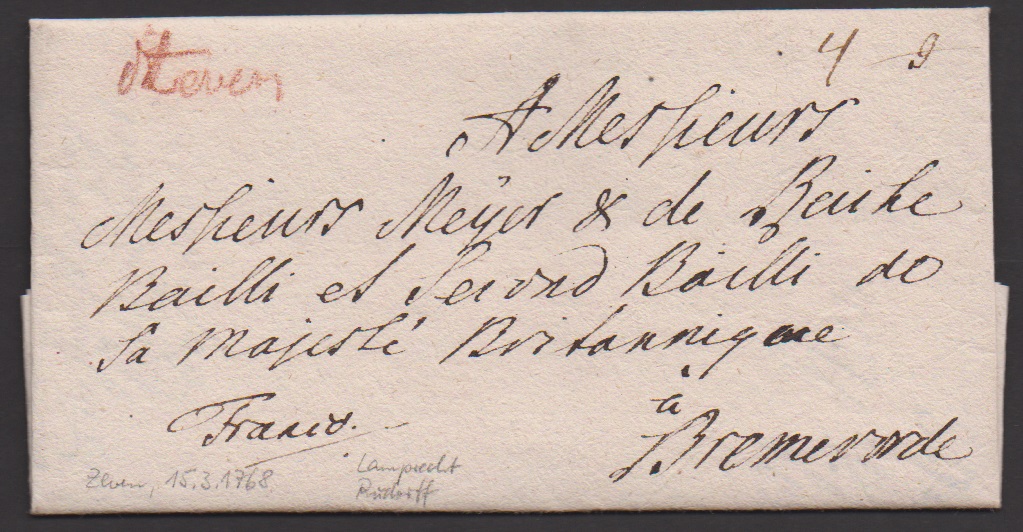 dZeven
4 9
A Messieurs
Messieurs Meÿer & de Beihe
Bailli et Second Bailli de
Sa Majesté Britannique
Franco.
à
Bremervorde
Zeven, 15.3.1768
Lamprecht
Rudorff